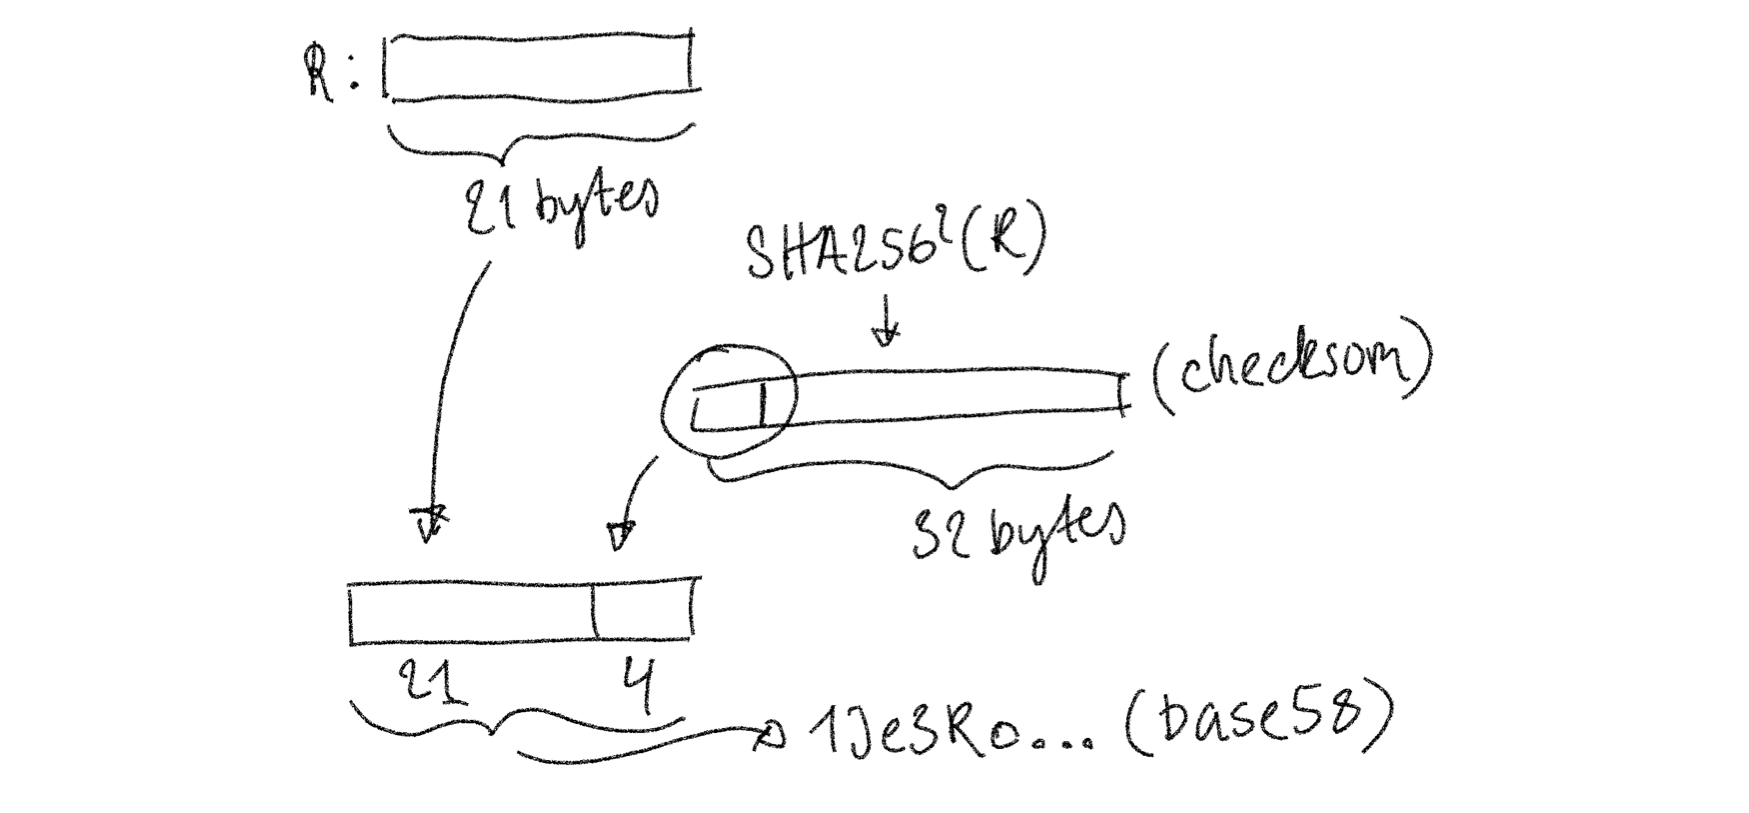 R:
21 bytes
SHA256²(R)
(checksom)
32 bytes
21 4
1Je3Ro... (base58)